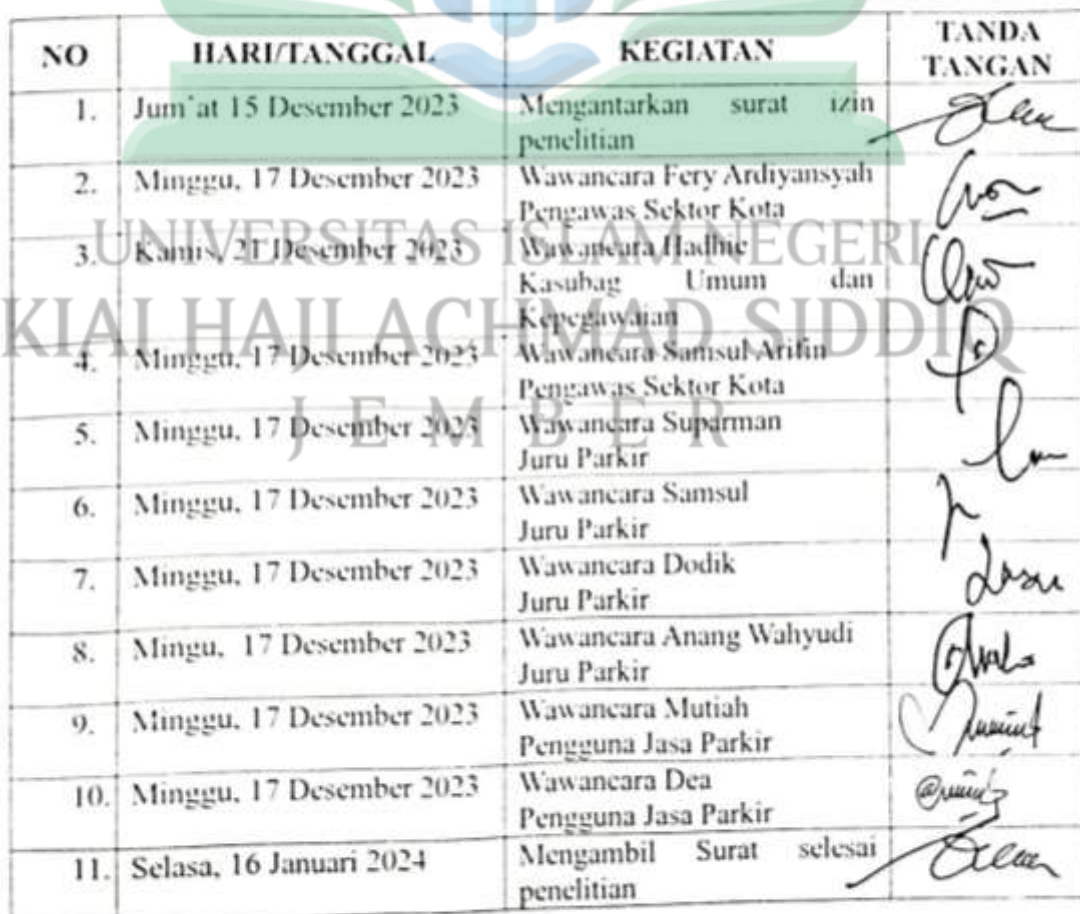 NO HARI/TANGGAL KEGIATAN TANDA
TANGAN
1. Jum'at 15 Desember 2023 Mengantarkan surat izin
penelitian
2. Minggu, 17 Desember 2023 Wawancara Fery Ardiyansyah
Pengawas Sektor Kota
3. Kamis, 21 Desember 2023 Wawancara Hadhie
Kasubag Umum dan
Kepegawaian
4. Minggu, 17 Desember 2023 Wawancara Samsul Arifin
Pengawas Sektor Kota
5. Minggu, 17 Desember 2023 Wawancara Suparman
Juru Parkir
6. Minggu, 17 Desember 2023 Wawancara Samsul
Juru Parkir
7. Minggu, 17 Desember 2023 Wawancara Dodik
Juru Parkir
8. Mingu, 17 Desember 2023 Wawancara Anang Wahyudi
Juru Parkir
9. Minggu, 17 Desember 2023 Wawancara Mutiah
Pengguna Jasa Parkir
10. Minggu, 17 Desember 2023 Wawancara Dea
Pengguna Jasa Parkir
11. Selasa, 16 Januari 2024 Mengambil Surat selesai
penelitian
UNIVERSITAS ISLAM NEGERI
KIAI HAJI ACHMAD SIDDIQ
JEMBER